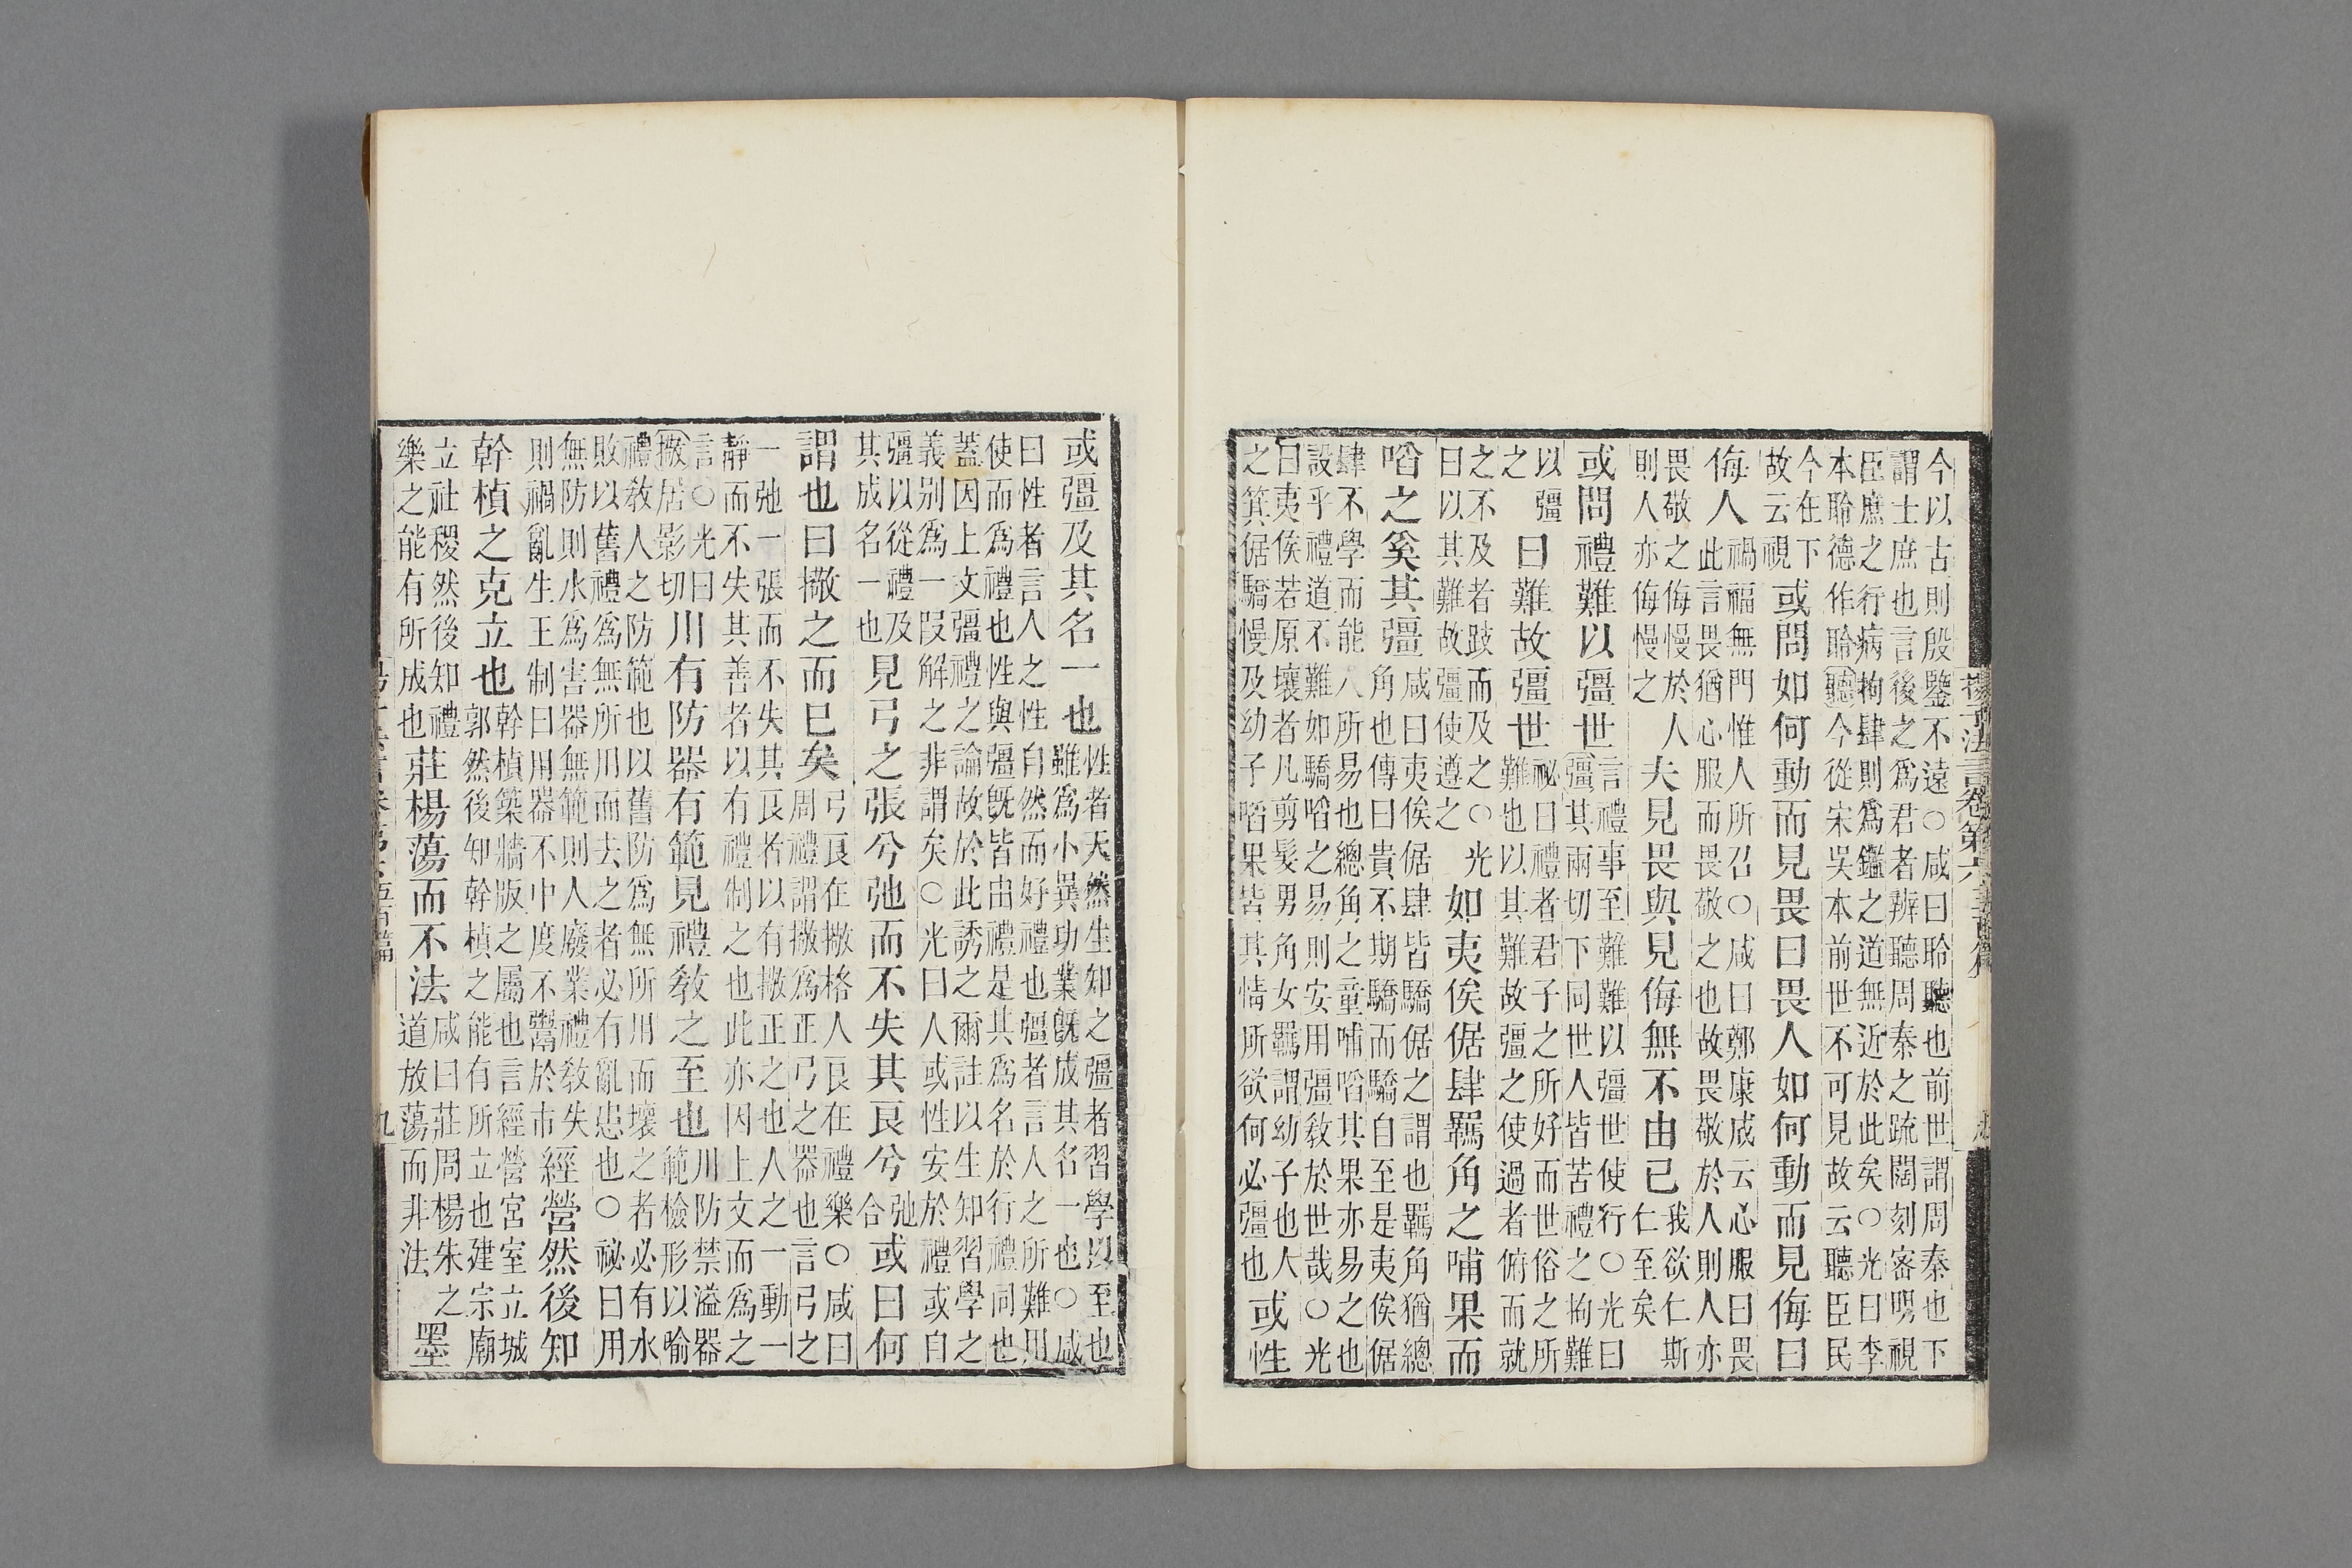 揚子法言卷第六
今以古則殷鑒不遠○咸曰聆聽也前世謂周秦也下
謂士庶也言後之爲君者辨聽周秦之疏闊刻密明視
臣庶之行病拘肆則爲鑑之道無近於此矣○光曰李
本聆德作聆聽今從宋吳本前世不可見故云聽臣民
今在下
故云視
或問如何動而見畏曰畏人如何動而見侮曰
侮人
禍福無門惟人所召○咸曰鄭康成云心服曰畏
此言畏猶心服而畏敬之也故畏敬於人則人亦
畏敬之侮慢於人
則人亦侮慢之
夫見畏與見侮無不由己
我欲仁斯
仁至矣
或問禮難以彊世
言禮事至難難以彊世世使行○光曰
彊其兩切下同世人皆苦禮之拘難
以彊
之
曰難故彊世
祕曰禮者君子之所好而世俗之所
難也以其難故彊之使過者俯而就
之不及者跂而及之○光
曰以其難故彊使遵之
如夷俟倨肆羈角之哺果而
啗之奚其彊
咸曰夷俟倨肆皆驕倨之謂也羈角猶總
角也傳曰貴不期驕而驕自至是夷俟倨
肆不學而能八所易也總角之童哺啗其果亦易之也
設乎禮道不難如驕啗之易則安用彊教於世哉○光
曰夷俟若原壤者凡剪髮男角女羈謂幼子也人
之箕倨驕慢及幼子啗果皆其情所欲何必彊也
或性
或彊及其名一也
性者天然生知之彊者習學以至也
雖爲小異功業既成其名一也○咸
曰性者言人之性自然而好禮也彊者言人之所難用
使而爲禮也性與彊既皆由禮是其爲名於行禮同也
蓋因上文彊禮之論故於此誘之爾註以生知習學之
義别爲一叚解之非謂矣○光曰人或性安於禮或自
彊以從禮及
其成名一也
見弓之張兮弛而不失其良兮
弛
合
或曰何
謂也曰撽之而已矣
弓良在撽格人良在禮樂○咸曰
周禮謂撽爲正弓之器也言弓之
一弛一張而不失其良者以有撽正之也人之一動一
靜而不失其善者以有禮制之也此亦因上文而爲之
言○光曰
撽居影切
川有防器有範見禮教之至也
川防禁溢器
範檢形以喻
禮教人之防範也以舊防爲無所用而壞之者必有水
敗以舊禮爲無所用而去之者必有亂患也○祕曰用
無防則水爲害器無範則人廢業禮教失
則禍亂生王制曰用器不中度不鬻於市
經營然後知
幹楨之克立也
幹楨築牆版之屬也言經營宮室立城
郭然後知幹楨之能有所立也建宗廟
立社稷然後知禮
樂之能有所成也
莊楊蕩而不法
咸曰莊周楊朱之
道放蕩而非法
墨
九